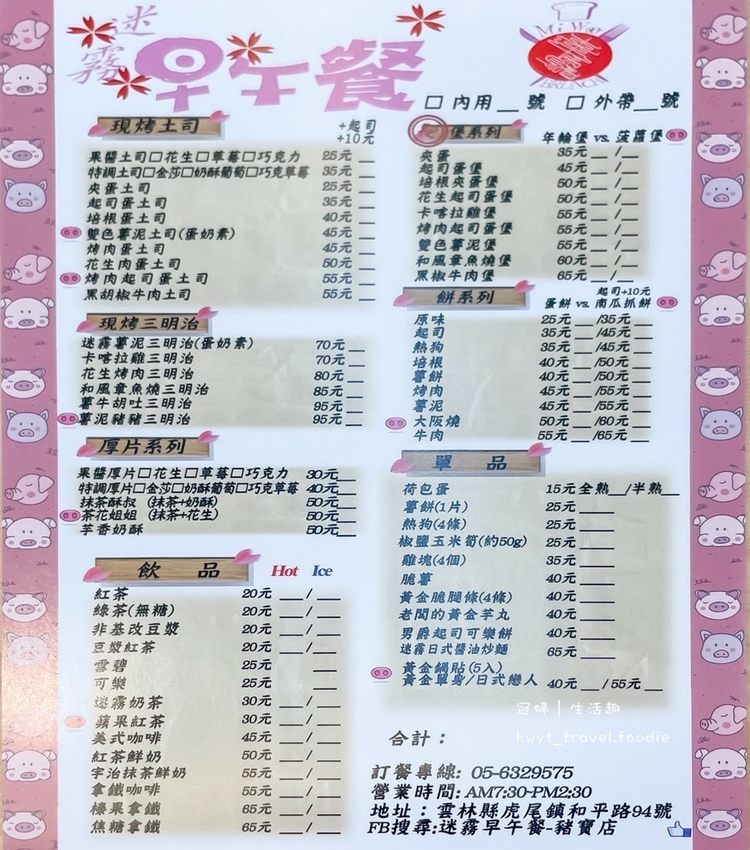 迷霧
早午餐
Mi Wu
BRUNCH
□ 內用__號 □ 外帶__號
現烤土司 +起司+10元
果醬土司□花生□草莓□巧克力 25元 __
特調土司□金莎□奶酥葡萄□巧克草莓 35元 __
夾蛋土司 25元 __
起司蛋土司 35元 __
培根蛋土司 40元 __
雙色薯泥土司(蛋奶素) 45元 __
烤肉蛋土司 45元 __
花生肉蛋土司 50元 __
烤肉起司蛋土司 55元 __
黑胡椒牛肉土司 55元 __
現烤三明治
迷霧薯泥三明治(蛋奶素) 70元 __
卡啦拉雞三明治 70元 __
花生烤肉三明治 80元 __
和風章魚燒三明治 85元 __
薯牛胡吐三明治 95元 __
薯泥豬豬三明治 95元 __
厚片系列
果醬厚片□花生□草莓□巧克力 30元__
特調厚片□金莎□奶酥葡萄□巧克草莓 40元__
抹茶酥叔 (抹茶+奶酥) 50元__
茶花姐姐 (抹茶+花生) 50元__
芋香奶酥 50元__
飲品 Hot Ice
紅茶 20元 __/__
綠茶(無糖) 20元 __/__
非基改豆漿 20元 __/__
豆漿紅茶 20元 __/__
雪碧 25元 __
可樂 25元 __
迷霧奶茶 30元 __/__
蘋果紅茶 30元 __/__
美式咖啡 45元 __/__
紅茶鮮奶 50元 __/__
宇治抹茶鮮奶 55元 __/__
拿鐵咖啡 55元 __/__
榛果拿鐵 65元 __/__
焦糖拿鐵 65元 __/__
堡系列 年輪堡 vs. 菠蘿堡
夾蛋 35元 __/__
起司蛋堡 45元 __/__
培根夾蛋堡 50元 __/__
花生起司蛋堡 50元 __/__
卡啦拉雞堡 55元 __/__
烤肉起司蛋堡 55元 __/__
雙色薯泥堡 55元 __/__
和風章魚燒堡 60元 __/__
黑椒牛肉堡 65元 __/__
餅系列 起司+10元
蛋餅 vs. 南瓜抓餅
原味 25元 __/35元 __
起司 35元 __/45元 __
熱狗 35元 __/45元 __
培根 40元 __/50元 __
薯餅 40元 __/50元 __
烤肉 45元 __/55元 __
薯泥 45元 __/55元 __
大阪燒 50元 __/60元 __
牛肉 55元 __/65元 __
單品
荷包蛋 15元 全熟__/半熟__
薯餅(1片) 25元 __
熱狗(4條) 25元 __
椒鹽玉米筍(約50g) 25元 __
雞塊(4個) 35元 __
脆薯 40元 __
黃金脆腿條(4條) 40元 __
老闆的黃金芋丸 40元 __
男爵起司可樂餅 40元 __
迷霧日式醬油炒麵 65元 __
黃金鍋貼(5入)
黃金單身/日式戀人 40元 __/55元 __
冠婷｜生活趣
kuyt_travel.foodie
合計：
訂餐專線: 05-6329575
營業時間: AM7:30-PM2:30
地址：雲林縣虎尾鎮和平路94號
FB搜尋:迷霧早午餐-豬寶店